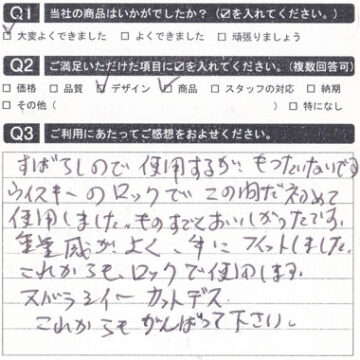 Q1 当社の商品はいかがでしたか？（☑を入れてください。）
☑大変よくできました □よくできました □頑張りましょう
Q2 ご満足いただけた項目に☑を入れてください。（複数回答可）
□価格 □品質 ☑デザイン ☑商品 □スタッフの対応 □納期
□その他（ ） □特になし
Q3 ご利用にあたってご感想をおよせください。
すばらしので使用するが、もったいないです
ウイスキーのロックでこの間だ初めて
使用しました。ものすごとおいしかったです。
重量感が、よく、手にフィットしました。
これからも、ロックで使用します。
スバラシイーカットデス.
これからもがんばって下さい。